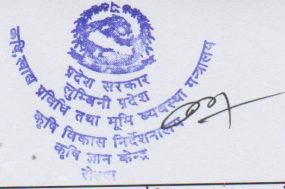 प्रदेश सरकार
लुम्बिनी प्रदेश
कृषि, खाद्य प्रविधि तथा भूमि व्यवस्था मन्त्रालय
कृषि विकास निर्देशनालय
कृषि ज्ञान केन्द्र